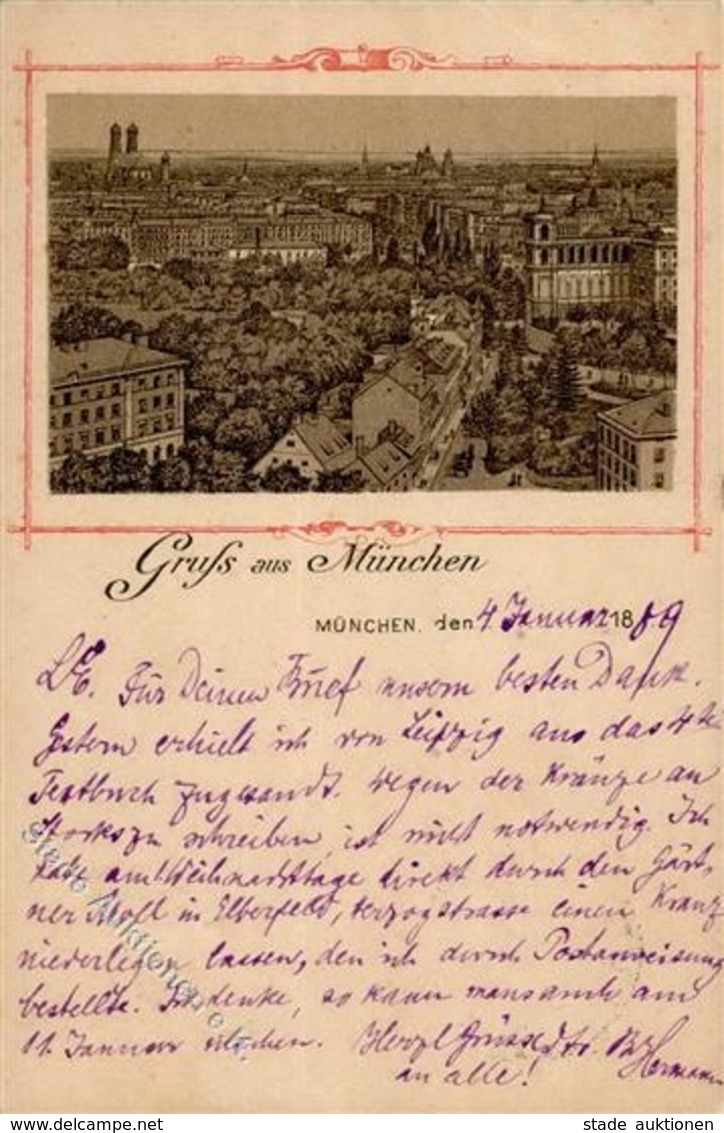 Gruss aus München
MÜNCHEN. den 4 Januar 1889
L E. Für Deinen Brief unsern besten Dank.
Gestern erhielt ich von Leipzig aus das 4te
Textbuch zugesandt. Wegen der Kränze an
zu schreiben, ist nicht notwendig. Ich
habe am Weihnachtstage direkt durch den Gärt-
ner Moll in Elberfeld, Herzogstrasse einen Kranz
niederlegen lassen, den ich durch Postanweisung
bestellte. Ich denke, so kann man's auch am
11. Januar machen. Herzl Grüsse Dr. Br.
Hermann
an alle!
stade auktionen